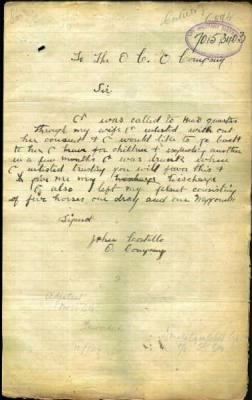 7015 3403
To The O C, C Company
Sir
I was called to Head quarters
through my wife I inlisted with out
her consent & I would like to go back
to her I have for children & expecting another
in a few months I was drunk when
I inlisted trusting you will favor this &
give me my discharge
I also left my plant consisting
of five horses one dray and one
Signed
John Costello
C Company